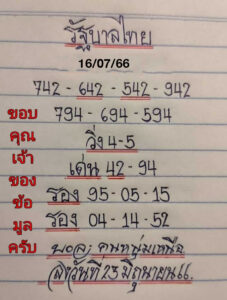 รัฐบาลไทย
16/07/66
742 - 642 - 542 - 942
794 - 694 - 594
วิ่ง 4-5
เด่น 42 - 94
รอง 95-05-15
รอง 04-14-52
หนุ่มเหนือ
วันที่ 23 มิถุนายน 66
ขอบ
คุณ
เจ้า
ของ
ข้อ
มูล
ครับ